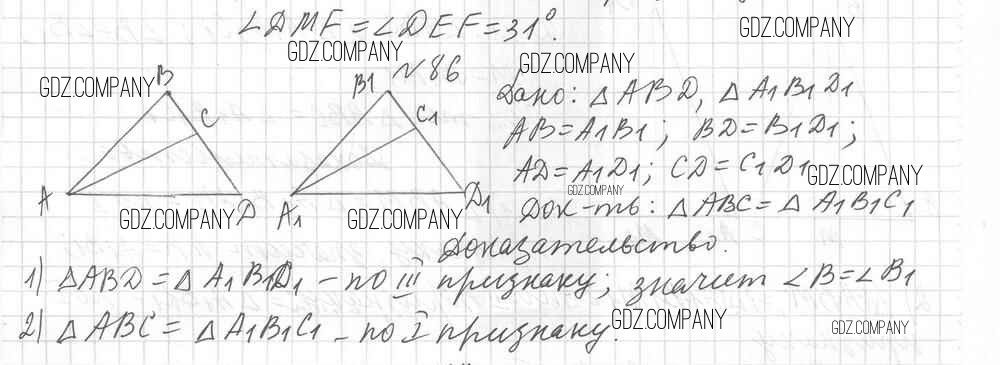 ∠DMF = ∠DEF = 31°.
GDZ.COMPANY
GDZ.COMPANY
№86
GDZ.COMPANY
GDZ.COMPANY
B
B1
C
C1
A
D
A1
D1
GDZ.COMPANY
GDZ.COMPANY
Дано: △ABD, △A1B1D1
AB=A1B1; BD=B1D1;
AD=A1D1; CD=C1D1
GDZ.COMPANY
GDZ.COMPANY
Док-ть: △ABC=△A1B1C1
Доказательство.
1) △ABD = △A1B1D1 – по III признаку; значит ∠B=∠B1
2) △ABC = △A1B1C1 – по I признаку.
GDZ.COMPANY
GDZ.COMPANY